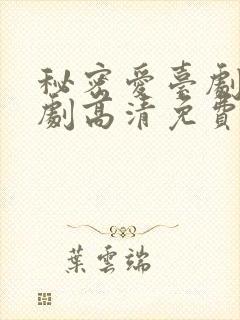 秘密愛臺劇
劇高清免費
葉雲端